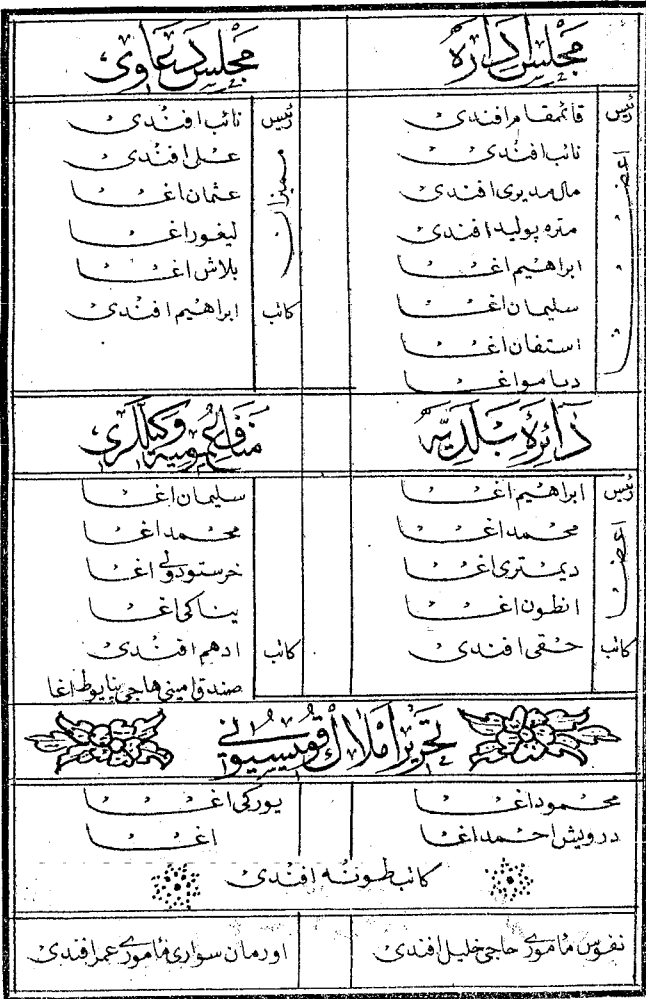 مجلس اداره
رئیس قائمقام افندی
اعضا نائب افندی
مال مدیری افندی
متره پولید افندی
ابراهیم اغا
سلیمان اغا
استفان اغا
دیامو اغا
مجلس دعاوی
رئیس نائب افندی
ممیزان علی افندی
عثمان اغا
لیغور اغا
بلاش اغا
کاتب ابراهیم افندی
دائرهٔ بلدیه
رئیس ابراهیم اغا
اعضا محمد اغا
دیمتری اغا
انطون اغا
کاتب حقی افندی
منافع عمومیه وکیللری
سلیمان اغا
محمد اغا
خرستودولی اغا
یناکی اغا
کاتب ادهم افندی
صندق امینی هاجی پنایوط اغا
تحریر املاك قومیسیونی
محمود اغا
درویش احمد اغا
یورکی اغا
اغا
کاتب طونه افندی
نفوس مأموری حاجی خلیل افندی
اورمان سواری مأموری عمر افندی